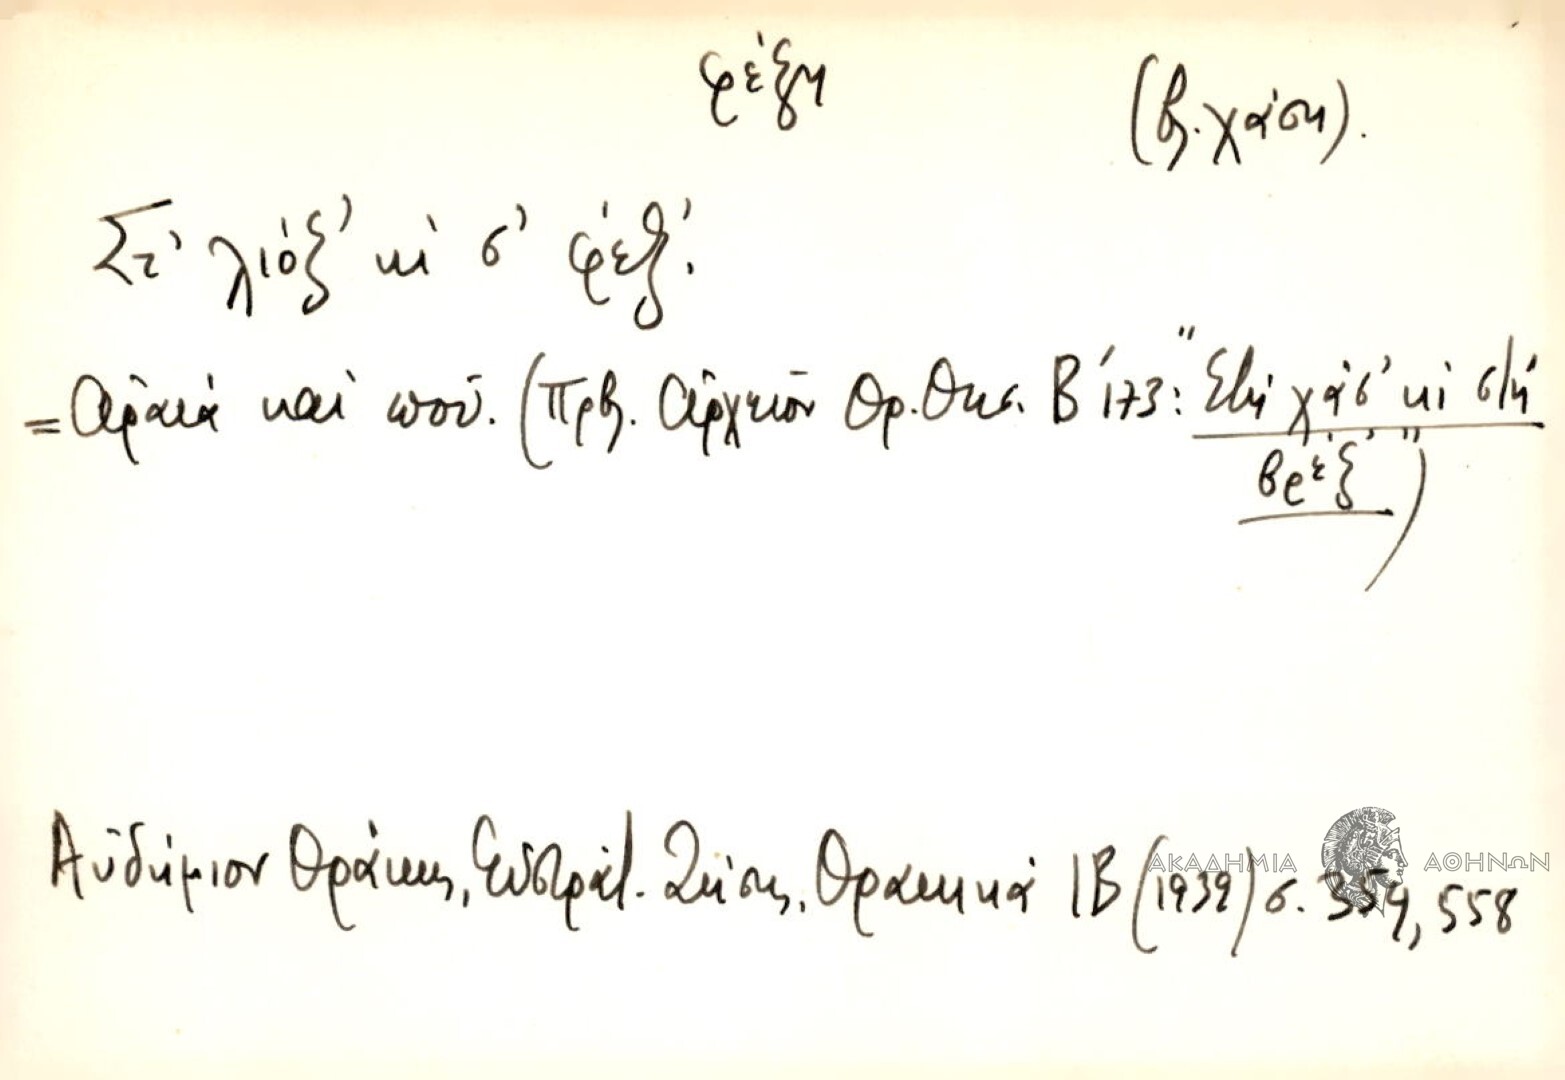 φέξη (βλ. χάση).
Στ' λιόξ' κὶ σ' φέξ'.
= Ἀραιὰ καὶ ποῦ. (Πρβλ. Ἀρχεῖον Θρ. Θησ. Β' 173: "Στὴ χάσ' κὶ στὴ
βρέξ'")
Αὐδήμιον Θράκης, Εὐστράτ. Ζήσης, Θρακικὰ ΙΒ (1939) σ. 354, 558
ΑΚΑΔΗΜΙΑ ΑΘΗΝΩΝ